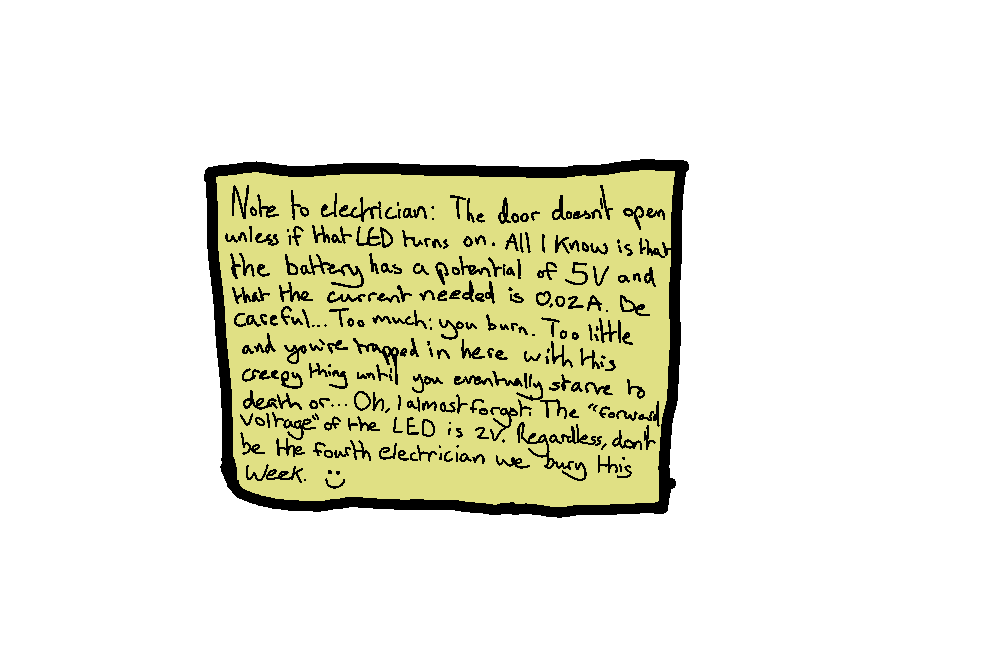 Note to electrician: The door doesn't open
unless if that LED turns on. All I know is that
the battery has a potential of 5V and
that the current needed is 0.02A. Be
careful... Too much; you burn. Too little
and you're trapped in here with this
creepy thing until you eventually starve to
death or... Oh, I almost forgot: The "forward
voltage" of the LED is 2V. Regardless, don't
be the fourth electrician we bury this
week. :)